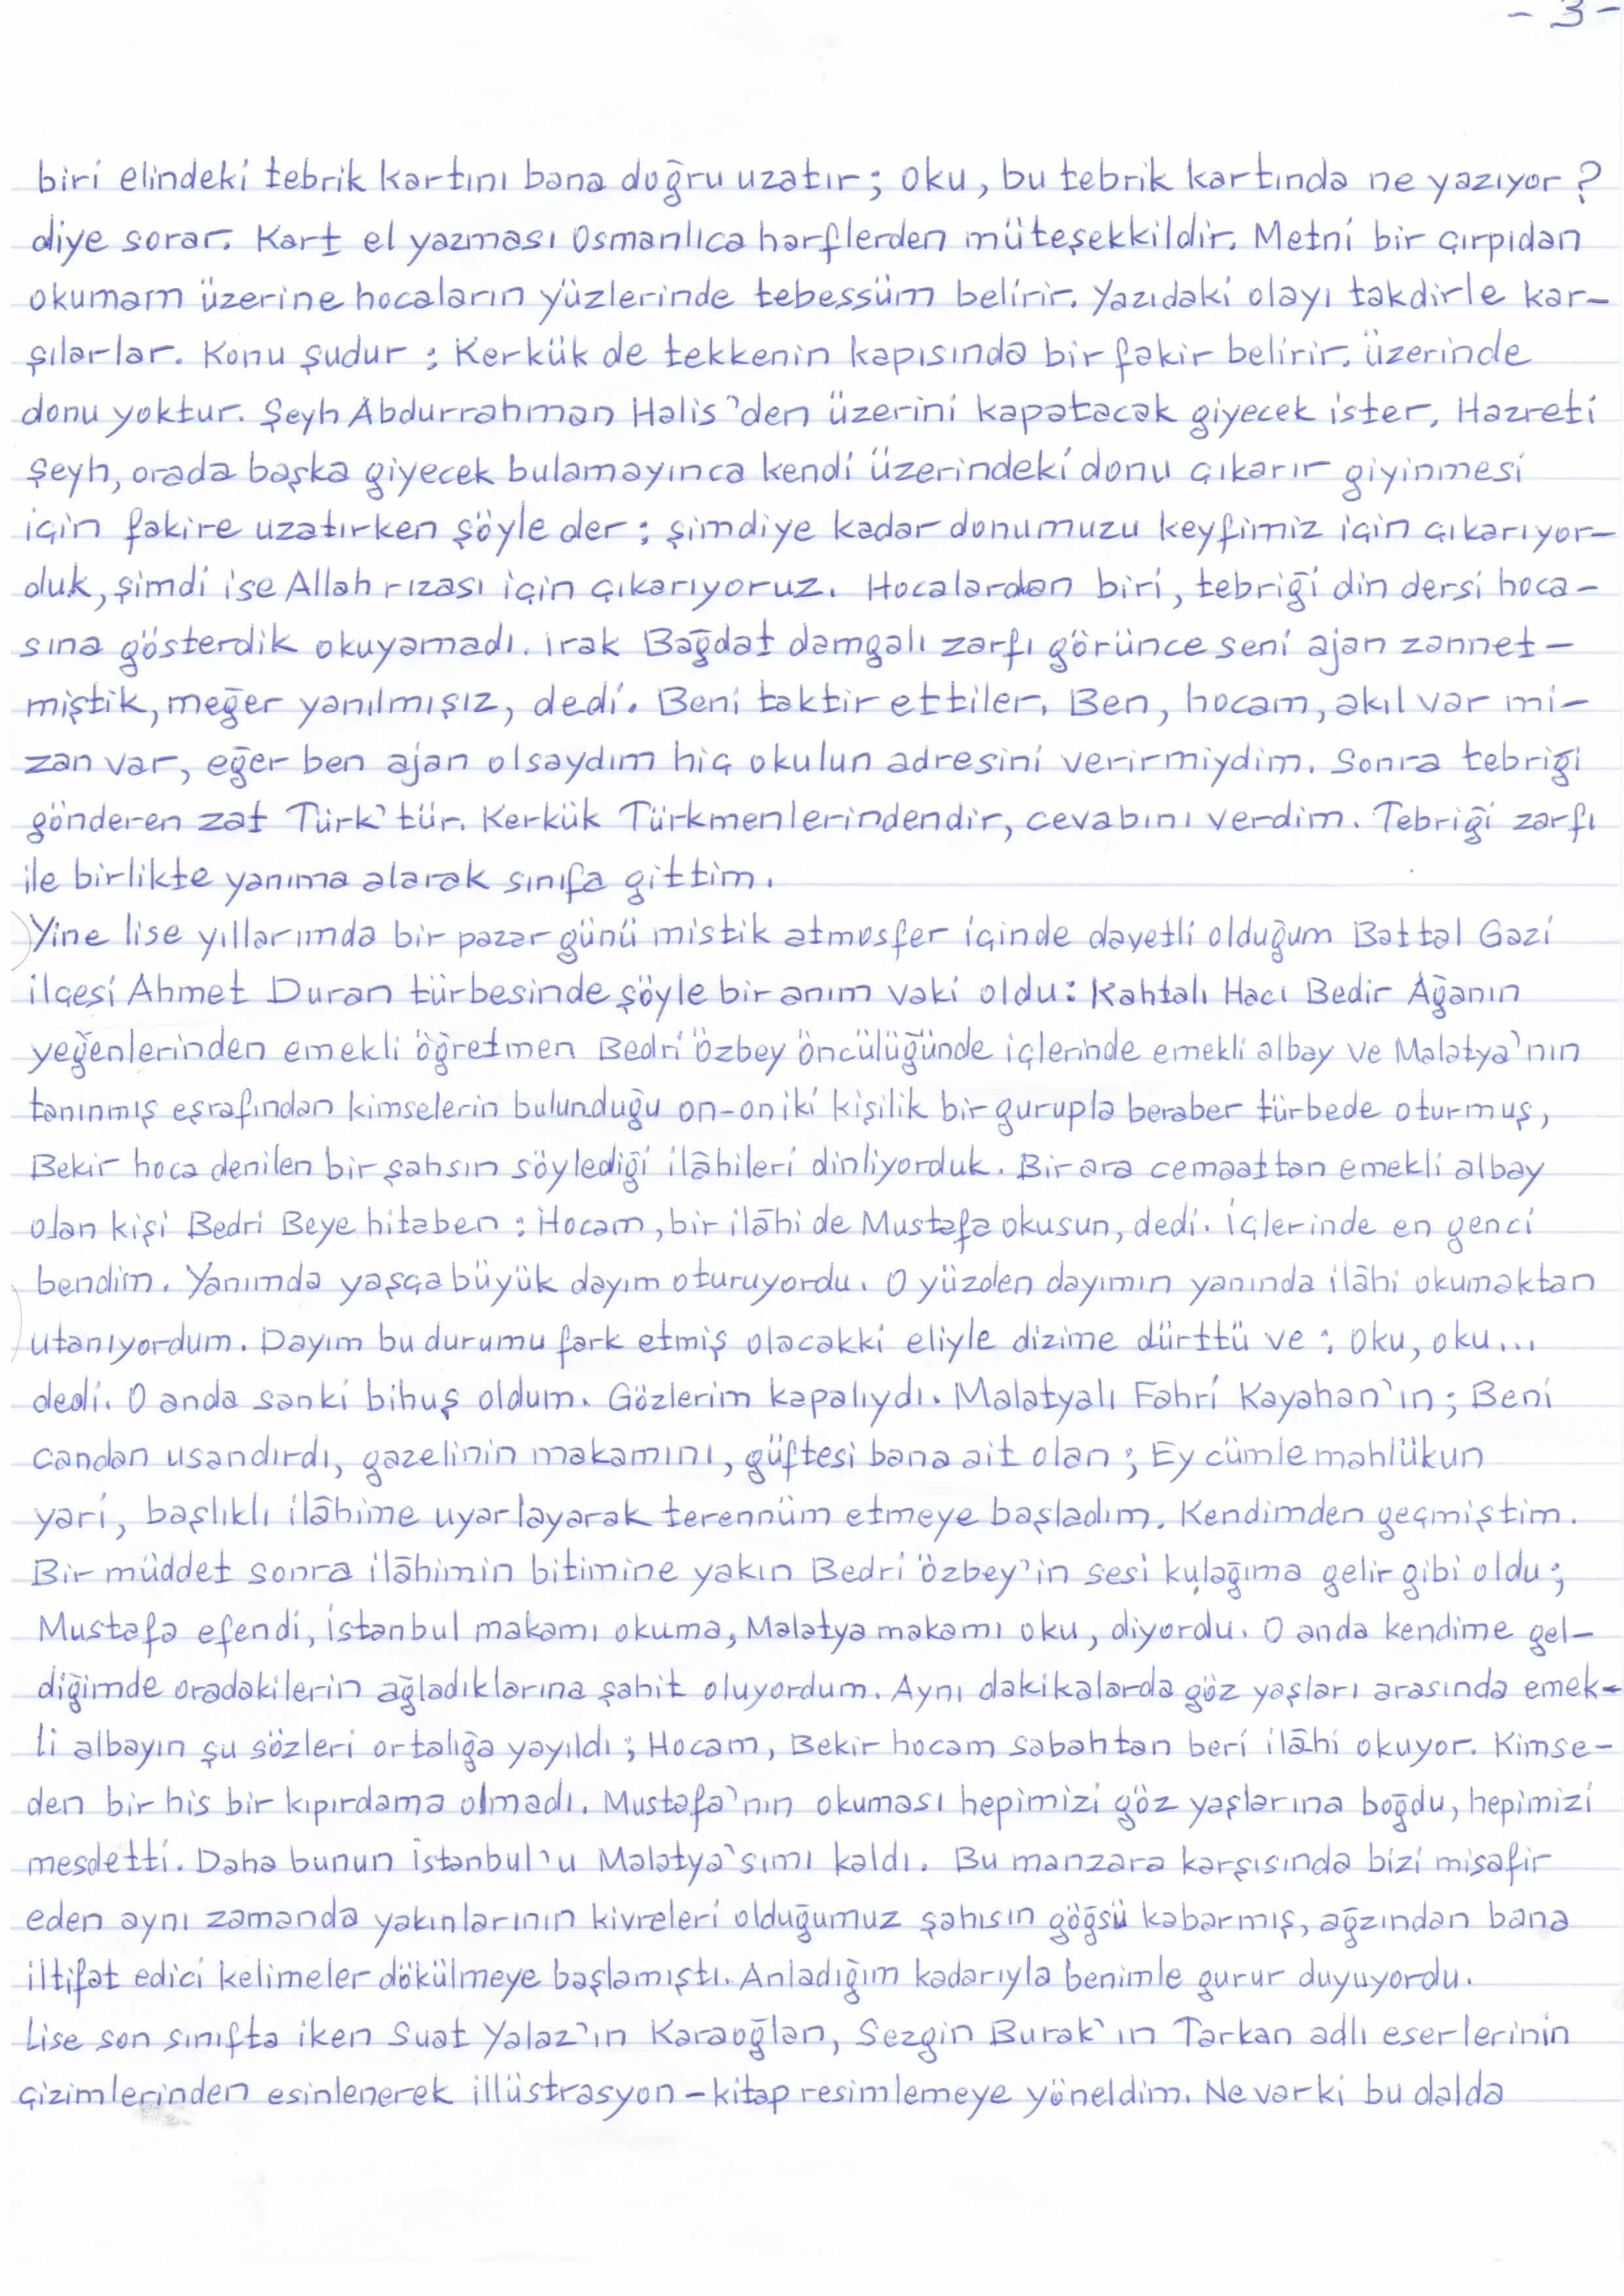 - 3 -
biri elindeki tebrik kartını bana doğru uzatır; oku, bu tebrik kartında ne yazıyor?
diye sorar. Kart el yazması Osmanlıca harflerden müteşekkildir. Metni bir çırpıdan
okumam üzerine hocaların yüzlerinde tebessüm belirir. Yazıdaki olayı takdirle kar-
şılarlar. Konu şudur ; Kerkük de tekkenin kapısında bir fakir belirir. üzerinde
donu yoktur. Şeyh Abdurrahman Halis'den üzerini kapatacak giyecek ister. Hazreti
Şeyh, orada başka giyecek bulamayınca kendi üzerindeki donu çıkarır giyinmesi
için fakire uzatırken şöyle der ; şimdiye kadar donumuzu keyfimiz için çıkarıyor-
duk, şimdi ise Allah rızası için çıkarıyoruz. Hocalardan biri, tebriği din dersi hoca-
sına gösterdik okuyamadı. Irak Bağdat damgalı zarfı görünce seni ajan zannet-
miştik, meğer yanılmışız, dedi. Beni taktir ettiler. Ben, hocam, akıl var mi-
zan var, eğer ben ajan olsaydım hiç okulun adresini verirmiydim. Sonra tebriği
gönderen zat Türk'tür. Kerkük Türkmenlerindendir, cevabını verdim. Tebriği zarfı
ile birlikte yanıma alarak sınıfa gittim.
Yine lise yıllarımda bir pazar günü mistik atmosfer içinde davetli olduğum Battal Gazi
ilçesi Ahmet Duran türbesinde şöyle bir anım vaki oldu: Kahtalı Hacı Bedir Ağanın
yeğenlerinden emekli öğretmen Bedri Özbey öncülüğünde içlerinde emekli albay ve Malatya'nın
tanınmış eşrafından kimselerin bulunduğu on-oniki kişilik bir gurupla beraber türbede oturmuş,
Bekir hoca denilen bir şahsın söylediği ilâhileri dinliyorduk. Bir ara cemaattan emekli albay
olan kişi Bedri Beye hitaben : Hocam, bir ilâhi de Mustafa okusun, dedi. İçlerinde en genci
bendim. Yanımda yaşça büyük dayım oturuyordu. O yüzden dayımın yanında ilâhi okumaktan
utanıyordum. Dayım bu durumu fark etmiş olacakki eliyle dizime dürttü ve ; oku, oku...
dedi. O anda sanki bihuş oldum. Gözlerim kapalıydı. Malatyalı Fahri Kayahan'ın ; Beni
candan usandırdı, gazelinin makamını, güftesi bana ait olan ; Ey cümle mahlükun
yari, başlıklı ilâhime uyarlayarak terennüm etmeye başladım. Kendimden geçmiştim.
Bir müddet sonra ilâhimin bitimine yakın Bedri Özbey'in sesi kulağıma gelir gibi oldu ;
Mustafa efendi, İstanbul makamı okuma, Malatya makamı oku, diyordu. O anda kendime gel-
diğimde oradakilerin ağladıklarına şahit oluyordum. Aynı dakikalarda göz yaşları arasında emek-
li albayın şu sözleri ortalığa yayıldı ; Hocam, Bekir hocam sabahtan beri ilâhi okuyor. Kimse-
den bir his bir kıpırdama olmadı. Mustafa'nın okuması hepimizi göz yaşlarına boğdu, hepimizi
mesdetti. Daha bunun İstanbul'u Malatya'sımı kaldı. Bu manzara karşısında bizi misafir
eden aynı zamanda yakınlarının kivreleri olduğumuz şahısın göğsü kabarmış, ağzından bana
iltifat edici kelimeler dökülmeye başlamıştı. Anladığım kadarıyla benimle gurur duyuyordu.
Lise son sınıfta iken Suat Yalaz'ın Karaoğlan, Sezgin Burak'ın Tarkan adlı eserlerinin
çizimlerinden esinlenerek illüstrasyon - kitap resimlemeye yöneldim. Ne varki bu dalda